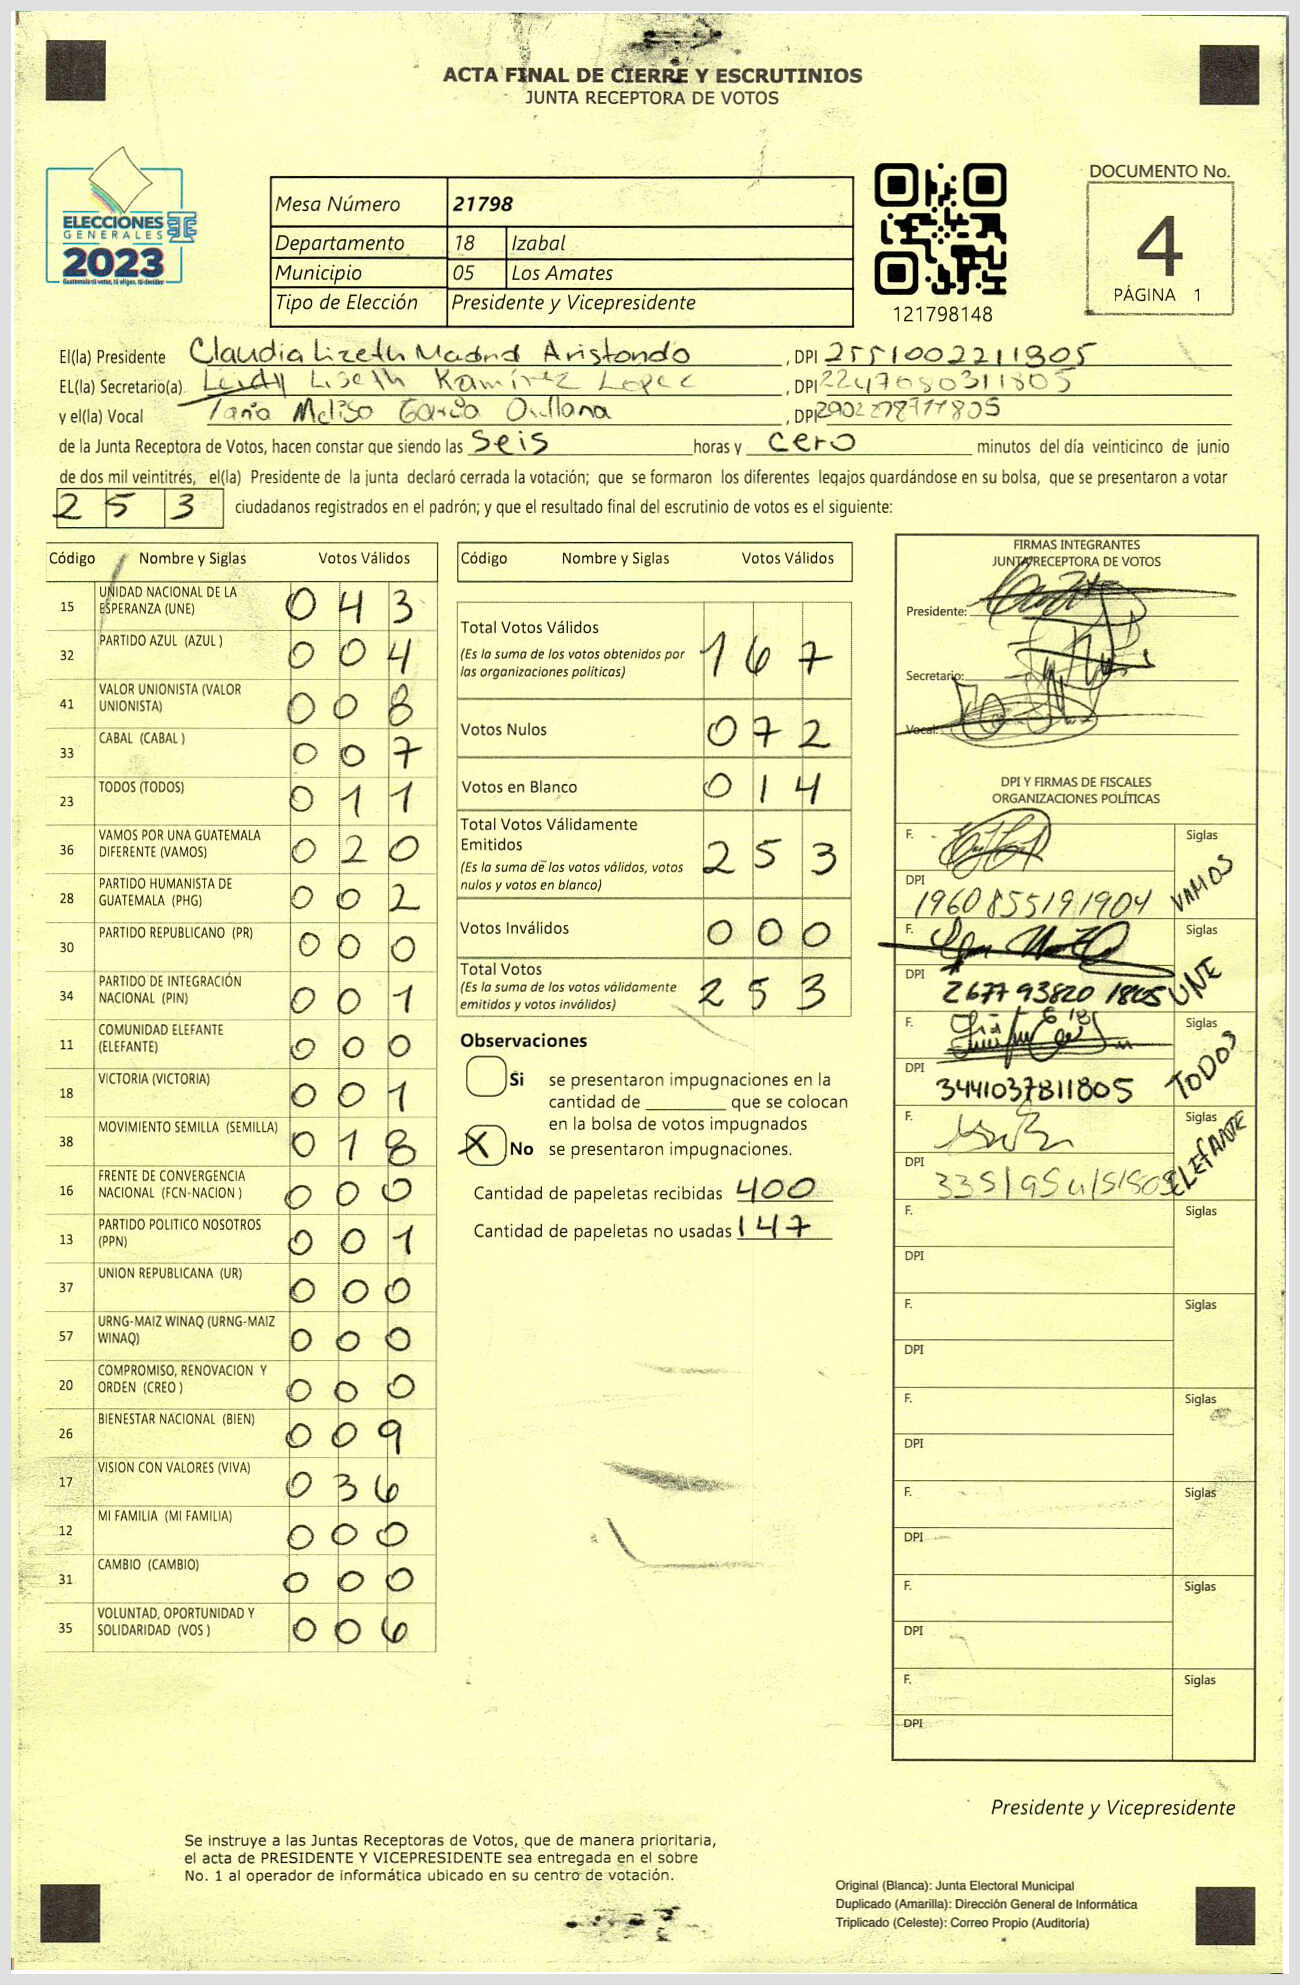 ACTA FINAL DE CIERRE Y ESCRUTINIOS
JUNTA RECEPTORA DE VOTOS
ELECCIONES
GENERALES
2023
Guatemala tú votas, tú eliges, tú decides
Mesa Número 21798
Departamento 18 Izabal
Municipio 05 Los Amates
Tipo de Elección Presidente y Vicepresidente
121798148
DOCUMENTO No.
4
PÁGINA 1
El(la) Presidente Claudia Lizeth Madrid Aristondo , DPI 2551002211805
EL(la) Secretario(a) Leidy Liseth Ramírez Lopez , DPI 2247080311805
y el(la) Vocal Garcia Orellana , DPI
de la Junta Receptora de Votos, hacen constar que siendo las Seis horas y cero minutos del día veinticinco de junio
de dos mil veintitrés, el(la) Presidente de la junta declaró cerrada la votación; que se formaron los diferentes legajos guardándose en su bolsa, que se presentaron a votar
2 5 3 ciudadanos registrados en el padrón; y que el resultado final del escrutinio de votos es el siguiente:
Código Nombre y Siglas Votos Válidos
15 UNIDAD NACIONAL DE LA ESPERANZA (UNE) 0 4 3
32 PARTIDO AZUL (AZUL ) 0 0 4
41 VALOR UNIONISTA (VALOR UNIONISTA) 0 0 8
33 CABAL (CABAL ) 0 0 7
23 TODOS (TODOS) 0 1 1
36 VAMOS POR UNA GUATEMALA DIFERENTE (VAMOS) 0 2 0
28 PARTIDO HUMANISTA DE GUATEMALA (PHG) 0 0 2
30 PARTIDO REPUBLICANO (PR) 0 0 0
34 PARTIDO DE INTEGRACIÓN NACIONAL (PIN) 0 0 1
11 COMUNIDAD ELEFANTE (ELEFANTE) 0 0 0
18 VICTORIA (VICTORIA) 0 0 1
38 MOVIMIENTO SEMILLA (SEMILLA) 0 1 8
16 FRENTE DE CONVERGENCIA NACIONAL (FCN-NACION ) 0 0 0
13 PARTIDO POLITICO NOSOTROS (PPN) 0 0 1
37 UNION REPUBLICANA (UR) 0 0 0
57 URNG-MAIZ WINAQ (URNG-MAIZ WINAQ) 0 0 0
20 COMPROMISO, RENOVACION Y ORDEN (CREO ) 0 0 0
26 BIENESTAR NACIONAL (BIEN) 0 0 9
17 VISION CON VALORES (VIVA) 0 3 6
12 MI FAMILIA (MI FAMILIA) 0 0 0
31 CAMBIO (CAMBIO) 0 0 0
35 VOLUNTAD, OPORTUNIDAD Y SOLIDARIDAD (VOS ) 0 0 6
Código Nombre y Siglas Votos Válidos
Total Votos Válidos 1 6 7
(Es la suma de los votos obtenidos por
las organizaciones políticas)
Votos Nulos 0 7 2
Votos en Blanco 0 1 4
Total Votos Válidamente
Emitidos 2 5 3
(Es la suma de los votos válidos, votos
nulos y votos en blanco)
Votos Inválidos 0 0 0
Total Votos 2 5 3
(Es la suma de los votos válidamente
emitidos y votos inválidos)
Observaciones
Si se presentaron impugnaciones en la
cantidad de ________ que se colocan
en la bolsa de votos impugnados
X No se presentaron impugnaciones.
Cantidad de papeletas recibidas 400
Cantidad de papeletas no usadas 147
FIRMAS INTEGRANTES
JUNTA RECEPTORA DE VOTOS
Presidente:
Secretario:
Vocal:
DPI Y FIRMAS DE FISCALES
ORGANIZACIONES POLÍTICAS
F. Siglas VAMOS
DPI 1960855191904
F. Siglas UNE
DPI 2677938201805
F. Siglas TODOS
DPI 3441037811805
F. Siglas ELEFANTE
DPI
F. Siglas
DPI
F. Siglas
DPI
F. Siglas
DPI
F. Siglas
DPI
F. Siglas
DPI
F. Siglas
DPI
Presidente y Vicepresidente
Se instruye a las Juntas Receptoras de Votos, que de manera prioritaria,
el acta de PRESIDENTE Y VICEPRESIDENTE sea entregada en el sobre
No. 1 al operador de informática ubicado en su centro de votación.
Original (Blanca): Junta Electoral Municipal
Duplicado (Amarilla): Dirección General de Informática
Triplicado (Celeste): Correo Propio (Auditoría)